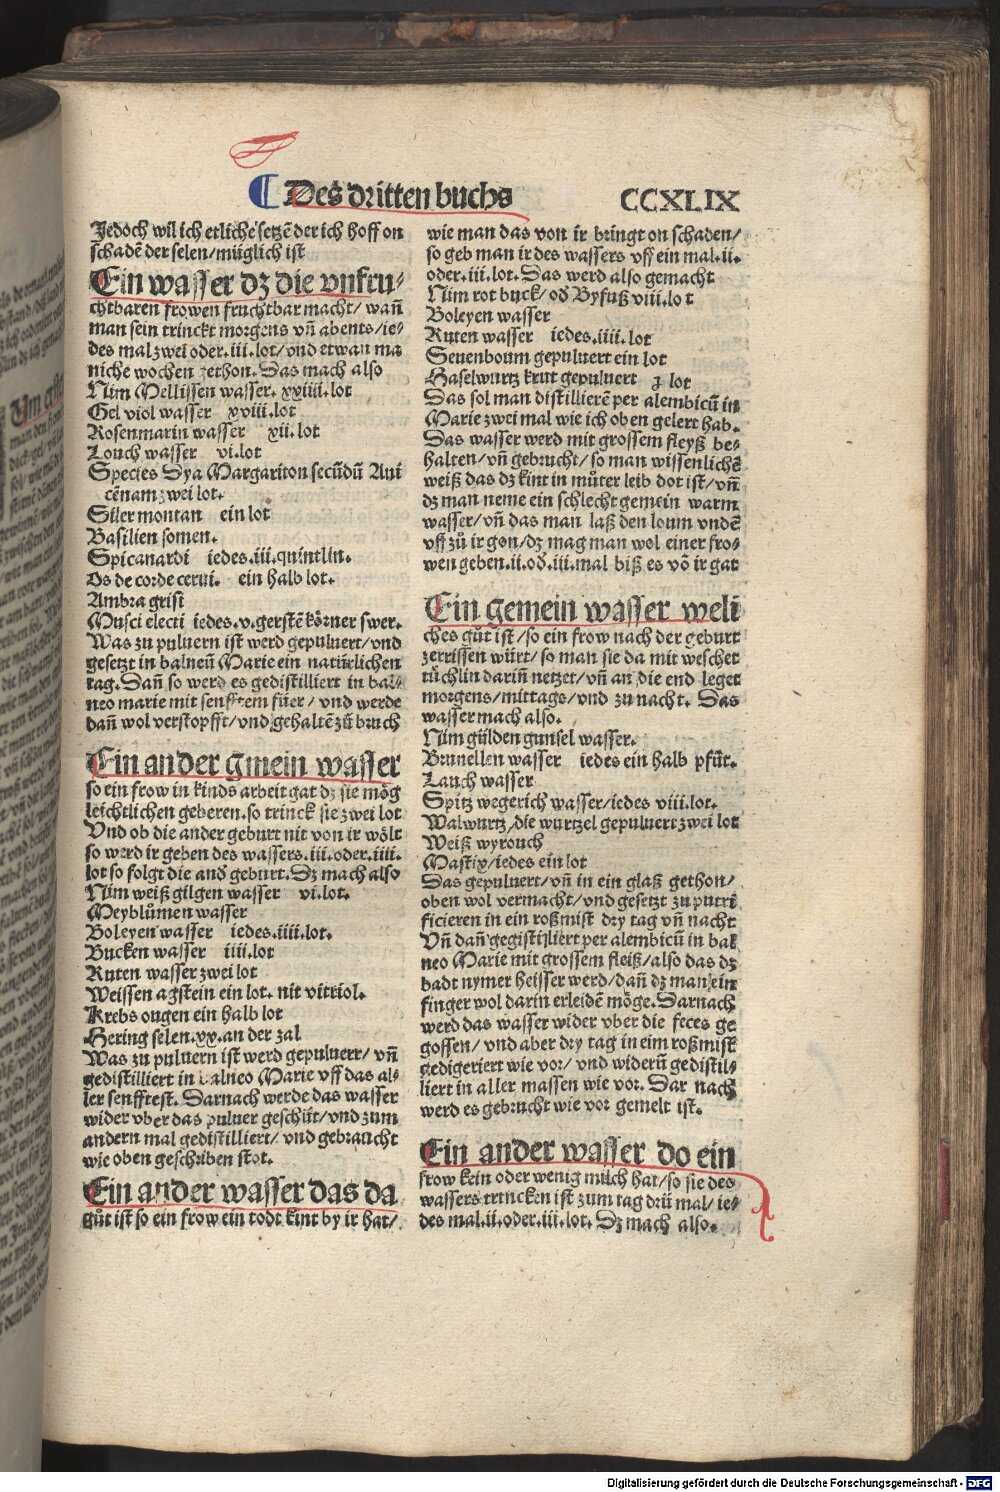 Des dritten buchs CCXLIX
Jedoch wil ich etliche setzē der ich hoff on
schadē der selen/müglich ist
Ein wasser dz die vnfru-
chtbaren frowen fruchtbar macht/ wañ
man sein trinckt morgens vñ abents/ie-
des mal zwei oder .iii. lot/vnd etwan ma
niche wochen gethon. Das mach also
Nim Mellissen wasser. xxiiii. lot
Gel viol wasser xviii. lot
Rosenmarin wasser xii. lot
Louch wasser vi. lot
Species Dya Margariton secūdū Aui
cēnam zwei lot.
Siler montan ein lot
Basilien somen.
Spicanardi iedes .iii. quintlin.
Os de corde cerui. ein halb lot.
Ambra grisi
Musci electi iedes .v. gerstē körner swer.
Was zu puluern ist werd gepuluert/vnd
gesetzt in balneū Marie ein natürlichen
tag. Dañ so werd es gedistilliert in bal-
neo marie mit senfftem füer/ vnd werde
dañ wol verstopfft/vnd gehaltē zů bruch
Ein ander gmein wasser
so ein frow in kinds arbeit gat dz sie mög
leichtlichen geberen. so trinck sie zwei lot
Vnd ob die ander geburt nit von ir wölt
so werd ir geben des wassers .iii. oder .iiii.
lot so folgt die and geburt. Dz mach also
Nim weiß gilgen wasser vi. lot.
Meyblůmen wasser
Boleyen wasser iedes .iiii. lot.
Bucken wasser iiii. lot
Ruten wasser zwei lot
Weissen agstein ein lot. nit vitriol.
Krebs ougen ein halb lot
Hering selen .xx. an der zal
Was zu puluern ist werd gepuluert/ vñ
gedistilliert in balneo Marie vff das al-
ler senfftest. Darnach werde das wasser
wider vber das puluer geschüt/vnd zum
andern mal gedistilliert/ vnd gebraucht
wie oben geschriben stot.
Ein ander wasser das da
gůt ist so ein frow ein todt kint by ir hat/
wie man das von ir bringt on schaden/
so geb man ir des wassers vff ein mal .ii.
oder .iii. lot. Das werd also gemacht
Nim rot buck/ od Byfuß viii. lot
Boleyen wasser
Ruten wasser iedes .iiii. lot
Seuenboum gepuluert ein lot
Haselwurtz krut gepuluert lot
Das sol man distillierē per alembicū in
Marie zwei mal wie ich oben gelert hab.
Das wasser werd mit grossem fleyß be-
halten/vñ gebrucht/so man wissenlichē
weiß das dz kint in můter leib dot ist/vñ
dz man neme ein schlecht gemein warm
wasser/vñ das man laß den loum vndē
vff zů ir gon/dz mag man wol einer fro-
wen geben .ii. od .iii. mal biß es vō ir gat
Ein gemein wasser weli
ches gůt ist/so ein frow nach der geburt
zerrissen würt/so man sie da mit weschet
tůchlin darin̄ netzet/vñ an die end leget
morgens/mittags/vnd zu nacht. Das
wasser mach also.
Nim gülden gunsel wasser.
Brunellen wasser iedes ein halb pfůt.
Lauch wasser
Spitz wegerich wasser/iedes viii. lot.
Walwurtz/die wurtzel gepuluert zwei lot
Weiß wyrouch
Mastix/iedes ein lot
Das gepuluert/vñ in ein glaß gethon/
oben wol vermacht/vnd gesetzt zu putri
ficieren in ein roßmist dry tag vñ nacht
Vñ dañ gegistilliert per alembicū in bal
neo Marie mit grossem fleiß/also das dz
badt nymer heisser werd/dañ dz man ein
finger wol darin erleidē möge. Darnach
werd das wasser wider vber die feces ge
gossen/ vnd aber dry tag in eim roßmist
gedigeriert wie vor/ vnd widerū gedistil-
liert in aller massen wie vor. Dar nach
werd es gebrucht wie vor gemelt ist.
Ein ander wasser do ein
frow kein oder wenig milch hat/so sie des
wassers trincken ist zum tag drü mal/ie-
des mal .ii. oder .iii. lot. Dz mach also.
Digitalisierung gefördert durch die Deutsche Forschungsgemeinschaft - DFG